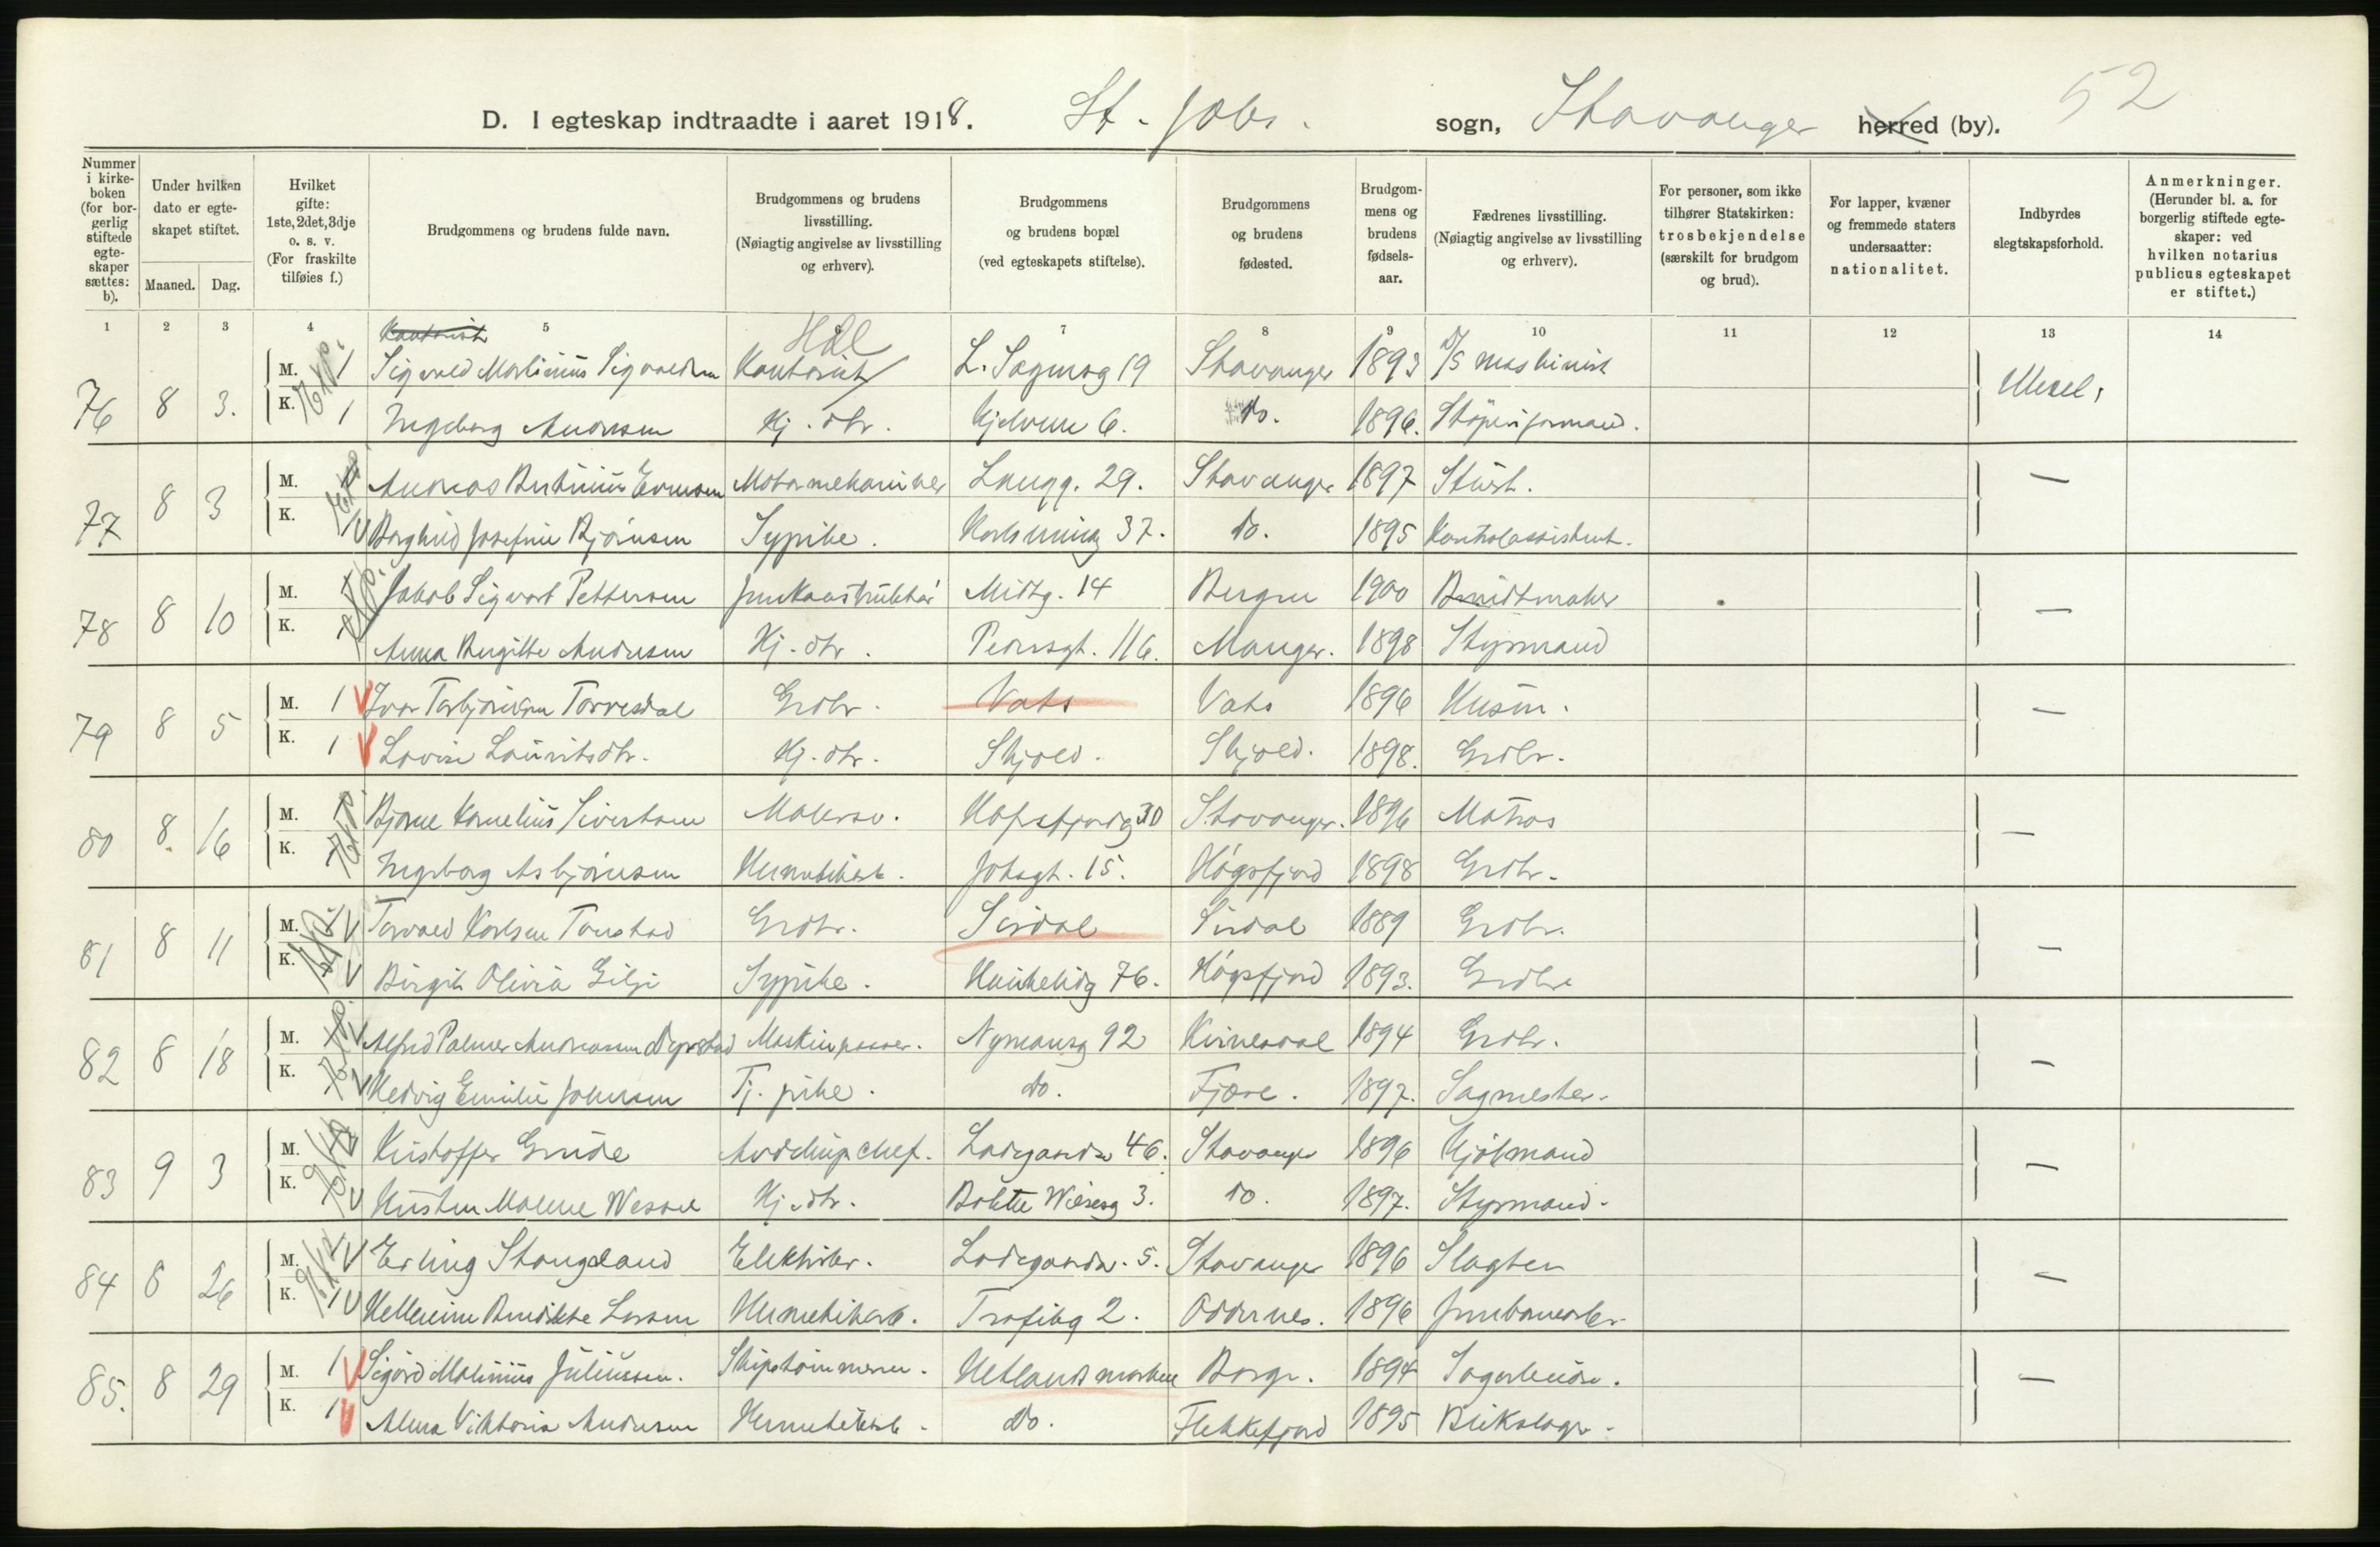 D. I egteskap indtraadte i aaret 1918. St. Johs. sogn, Stavanger herred (by). 52
Nummer i kirkeboken (for borgerlig stiftede egteskaper sættes: b).
Under hvilken dato er egteskapet stiftet.
Maaned. Dag.
Hvilket gifte: 1ste, 2det, 3dje o. s. v. (For fraskilte tilføies f.)
Brudgommens og brudens fulde navn.
Brudgommens og brudens livsstilling. (Nøiagtig angivelse av livsstilling og erhverv).
Brudgommens og brudens bopæl (ved egteskapets stiftelse).
Brudgommens og brudens fødested.
Brudgommens og brudens fødselsaar.
Fædrenes livsstilling. (Nøiagtig angivelse av livsstilling og erhverv).
For personer, som ikke tilhører Statskirken: trosbekjendelse (særskilt for brudgom og brud).
For lapper, kvæner og fremmede staters undersaatter: nationalitet.
Indbyrdes slegtskapsforhold.
Anmerkninger. (Herunder bl. a. for borgerlig stiftede egteskaper: ved hvilken notarius publicus egteskapet er stiftet.)
1 2 3 4 5 7 8 9 10 11 12 13 14
Kontorist
76 8 3. M. 1 Kontorist L. Sagmog 19 Stavanger 1893 D/S maskinist
K. 1 Ingeborg Andersen Hj. dtr. Kjelvene 6. do. 1896. Støperiformand.
77 8 3 M. Motormekaniker Langg. 29. Stavanger 1897 Stuert. —
K. Borghild Josefine Bjørnsen Sypike. 37. do. 1895 Kontorassistent.
78 8 10 M. Jakob Sigvart Pettersen Jernkonstruktør Midtg. 14 Bergen 1900 Buntmaker —
K. Anna Birgitte Andersen Hj. dtr. Pedersgt. 116. Manger. 1898 Styrmand
79 8 5 M. 1 Ivar Torbjørnsen Torvesdal Grdbr. Vats Vats 1896 Husm. —
K. 1 Lovise Lauritsdtr. Hj. dtr. Skjold. Skjold. 1898. Grdbr.
80 8. 16 M. Bjarne Kornelius Sivertsen Malersv. Hafsfjordg 30 Stavanger. 1896 Matros —
K. Ingeborg Asbjørnsen Hermetikarb. Johsgt. 15. Høgsfjord 1898 Grdbr.
81 8 11 M. Torvald Karlsen Tonstad Grdbr. Sirdal Sirdal 1889 Grdbr. —
K. Birgit Olivia Gilje Sypike. Haukeligt 76. Høgsfjord 1893. Grdbr.
82 8 18 M. Maskinpasser. Nymansg 92 Kvinesdal 1894 Grdbr. —
K. Hedvig Emilie Johnsen Tj. pike. do. Fjære. 1897. Sagmester.
83 9 3 M. Kristoffer Grude Avdelingschef. Ladegaardsv 46. Stavanger 1896 Kjølmand —
K. Kirsten Malene Wessel Hj. dtr. Bolette Wiesesg 3. do. 1897. Styrmand.
84 8 26 M. Erling Stangeland Elektriker. Ladegaardsv. 5. Stavanger 1896 Slagter —
K. Hellevine Benedikte Larsen Hermetikarb. Trofibg 2. Oddernes. 1896 Jernbanearb.
85. 8 29 M. 1 Sigurd Malinius Juliussen. Skipstømmerm. Hetlandsmarken Borge. 1894 —
K. 1 Alma Viktoria Andersen Hermetikarb. do. Flekkefjord 1895 Blikslager.